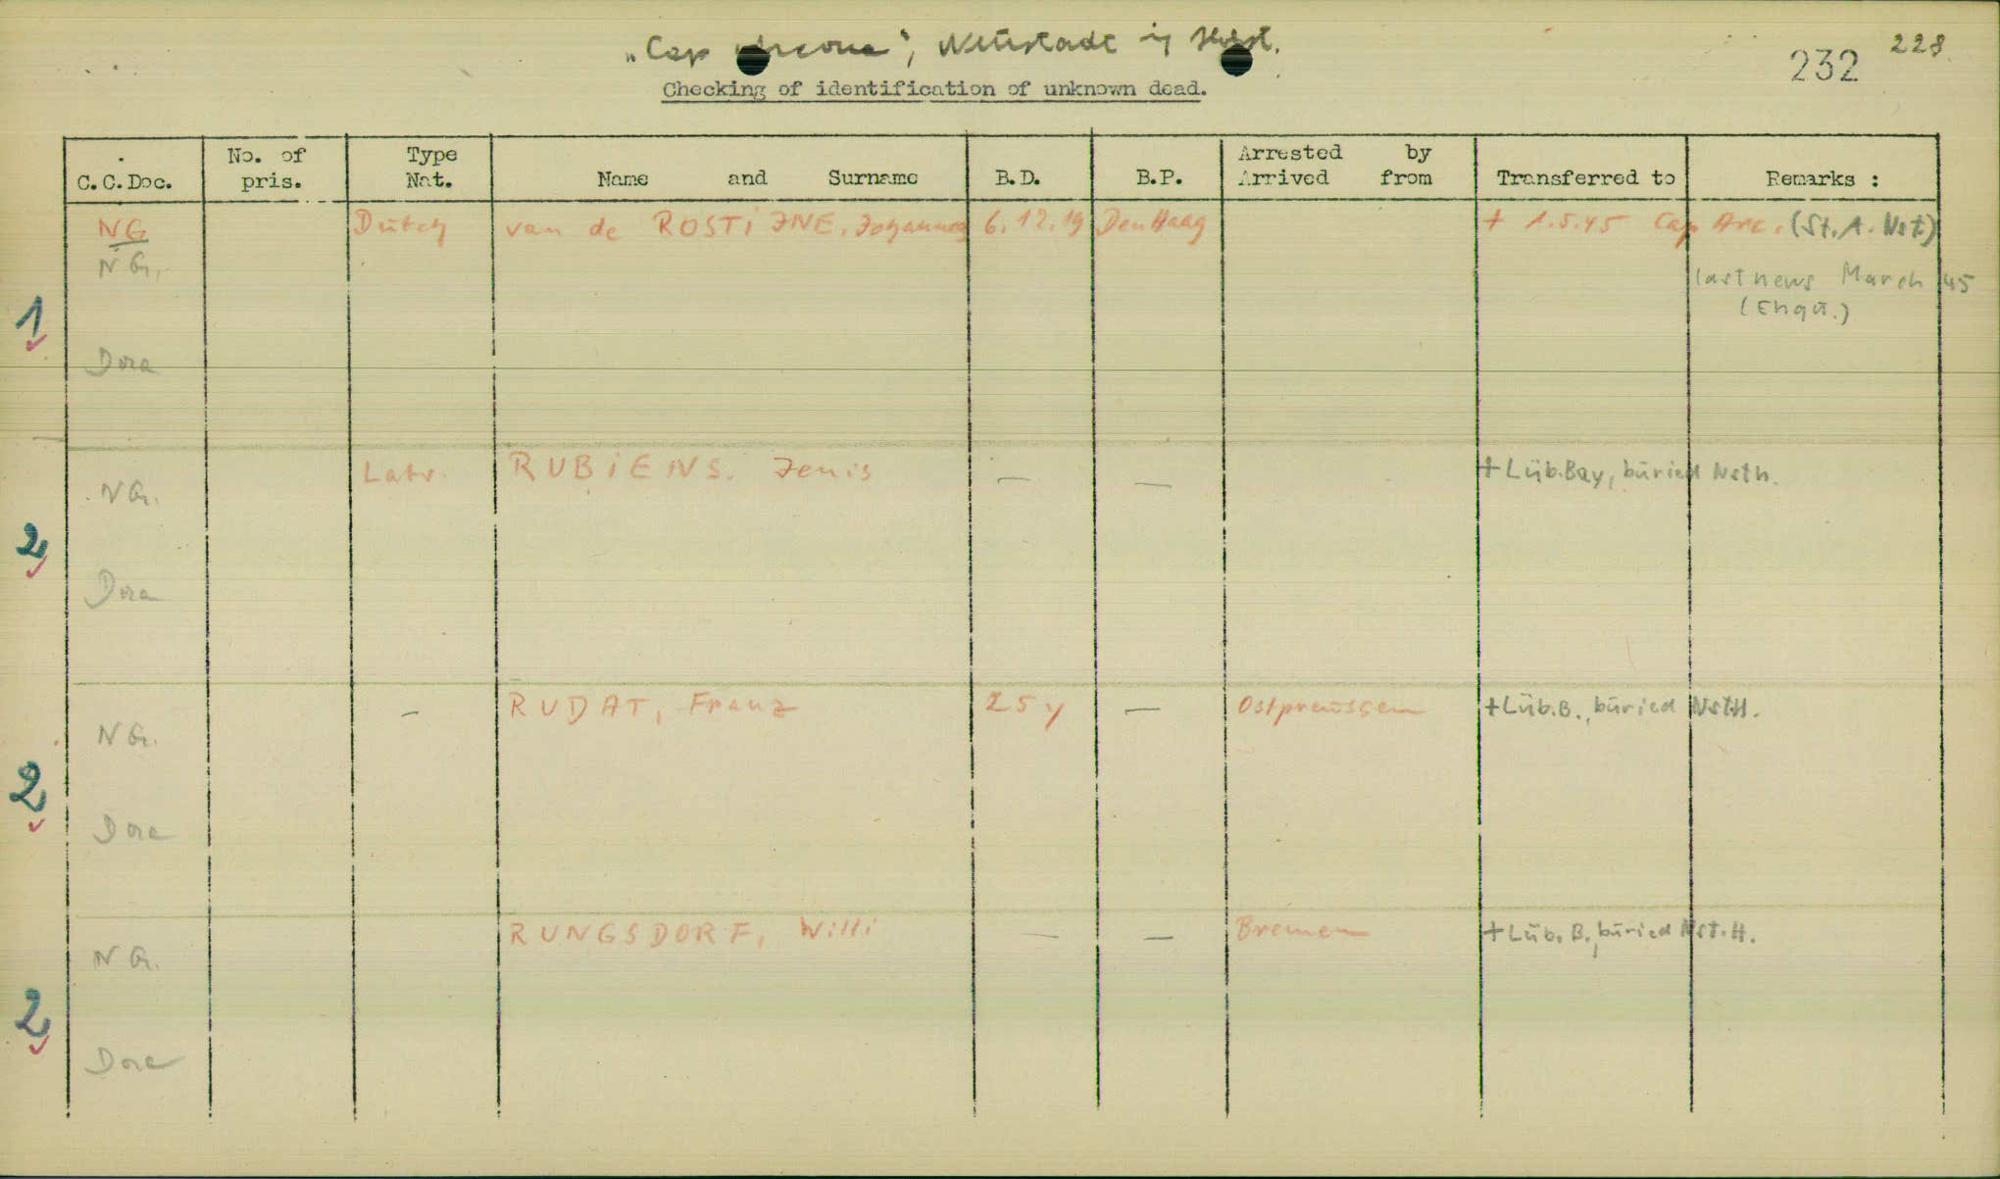 „Cap Arcona", Neustadt in Holst.
232 228
Checking of identification of unknown dead.
C.C.Doc. No. of pris. Type Nat. Name and Surname B.D. B.P. Arrested by Arrived from Transferred to Remarks :
NG Dutch van de ROSTIJNE, Johannes 6.12.19 Den Haag + 1.5.45 Cap Arc. (St.A. Nst)
NG. last news March 45
1 (Enqu.)
Dora
Latv. RUBiENS. Jenis — — + Lüb.Bay, buried Nsth.
NG.
2
Dora
— RUDAT, Franz 25 y — Ostpreussen + Lüb.B., buried NstH.
NG.
2
Dora
RUNGSDORF, Willi — — Bremen + Lüb. B., buried Nst.H.
NG.
2
Dora